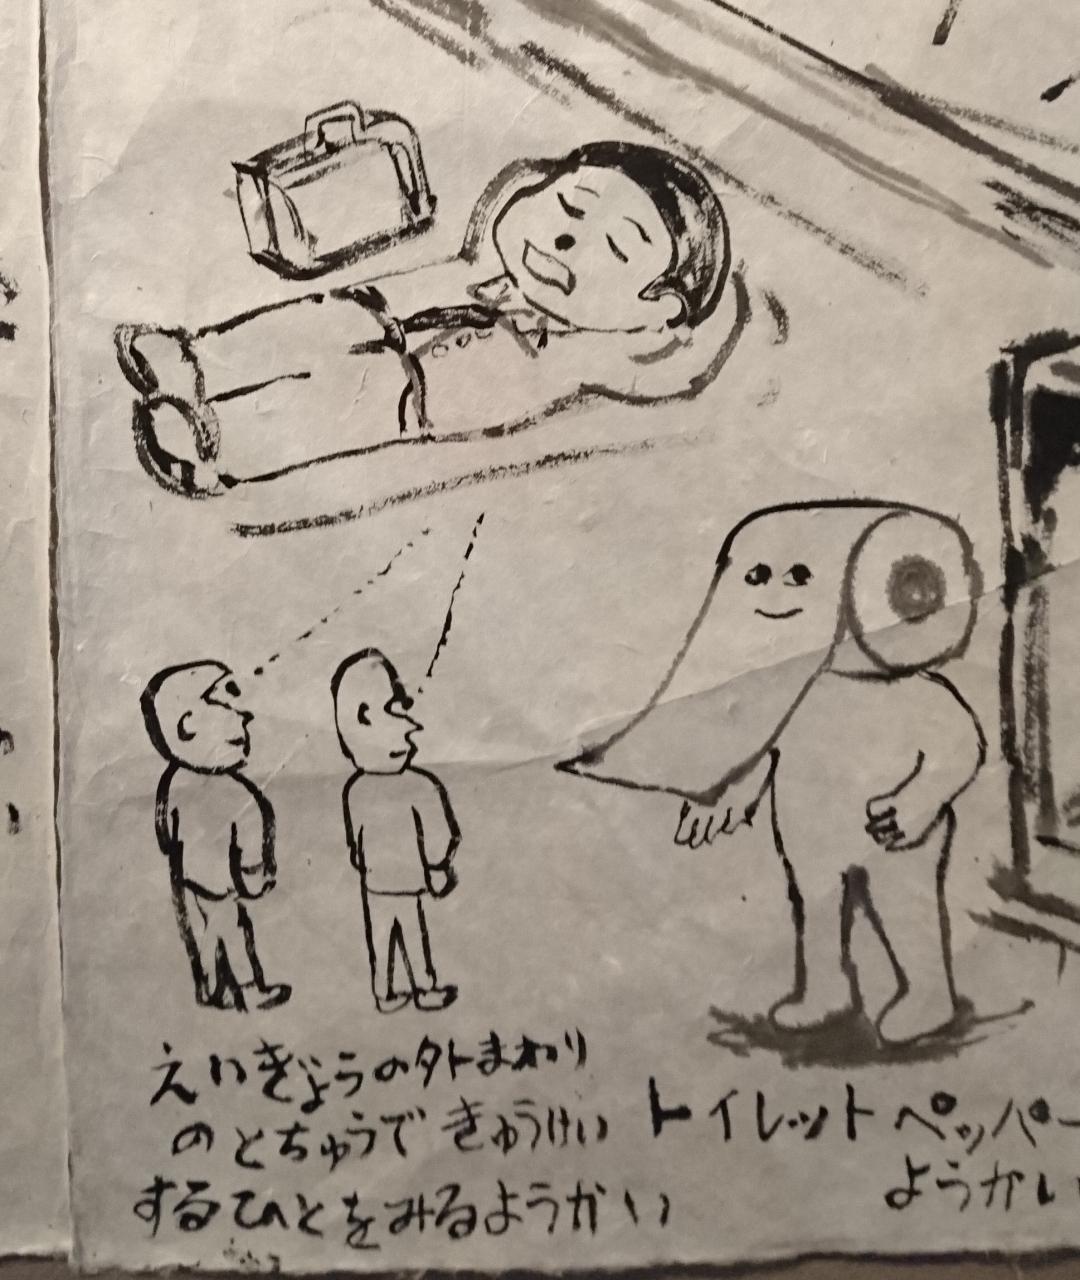 えいぎょうの外まわり
のとちゅうできゅうけい
するひとをみるようかい
トイレットペッパー
ようかい